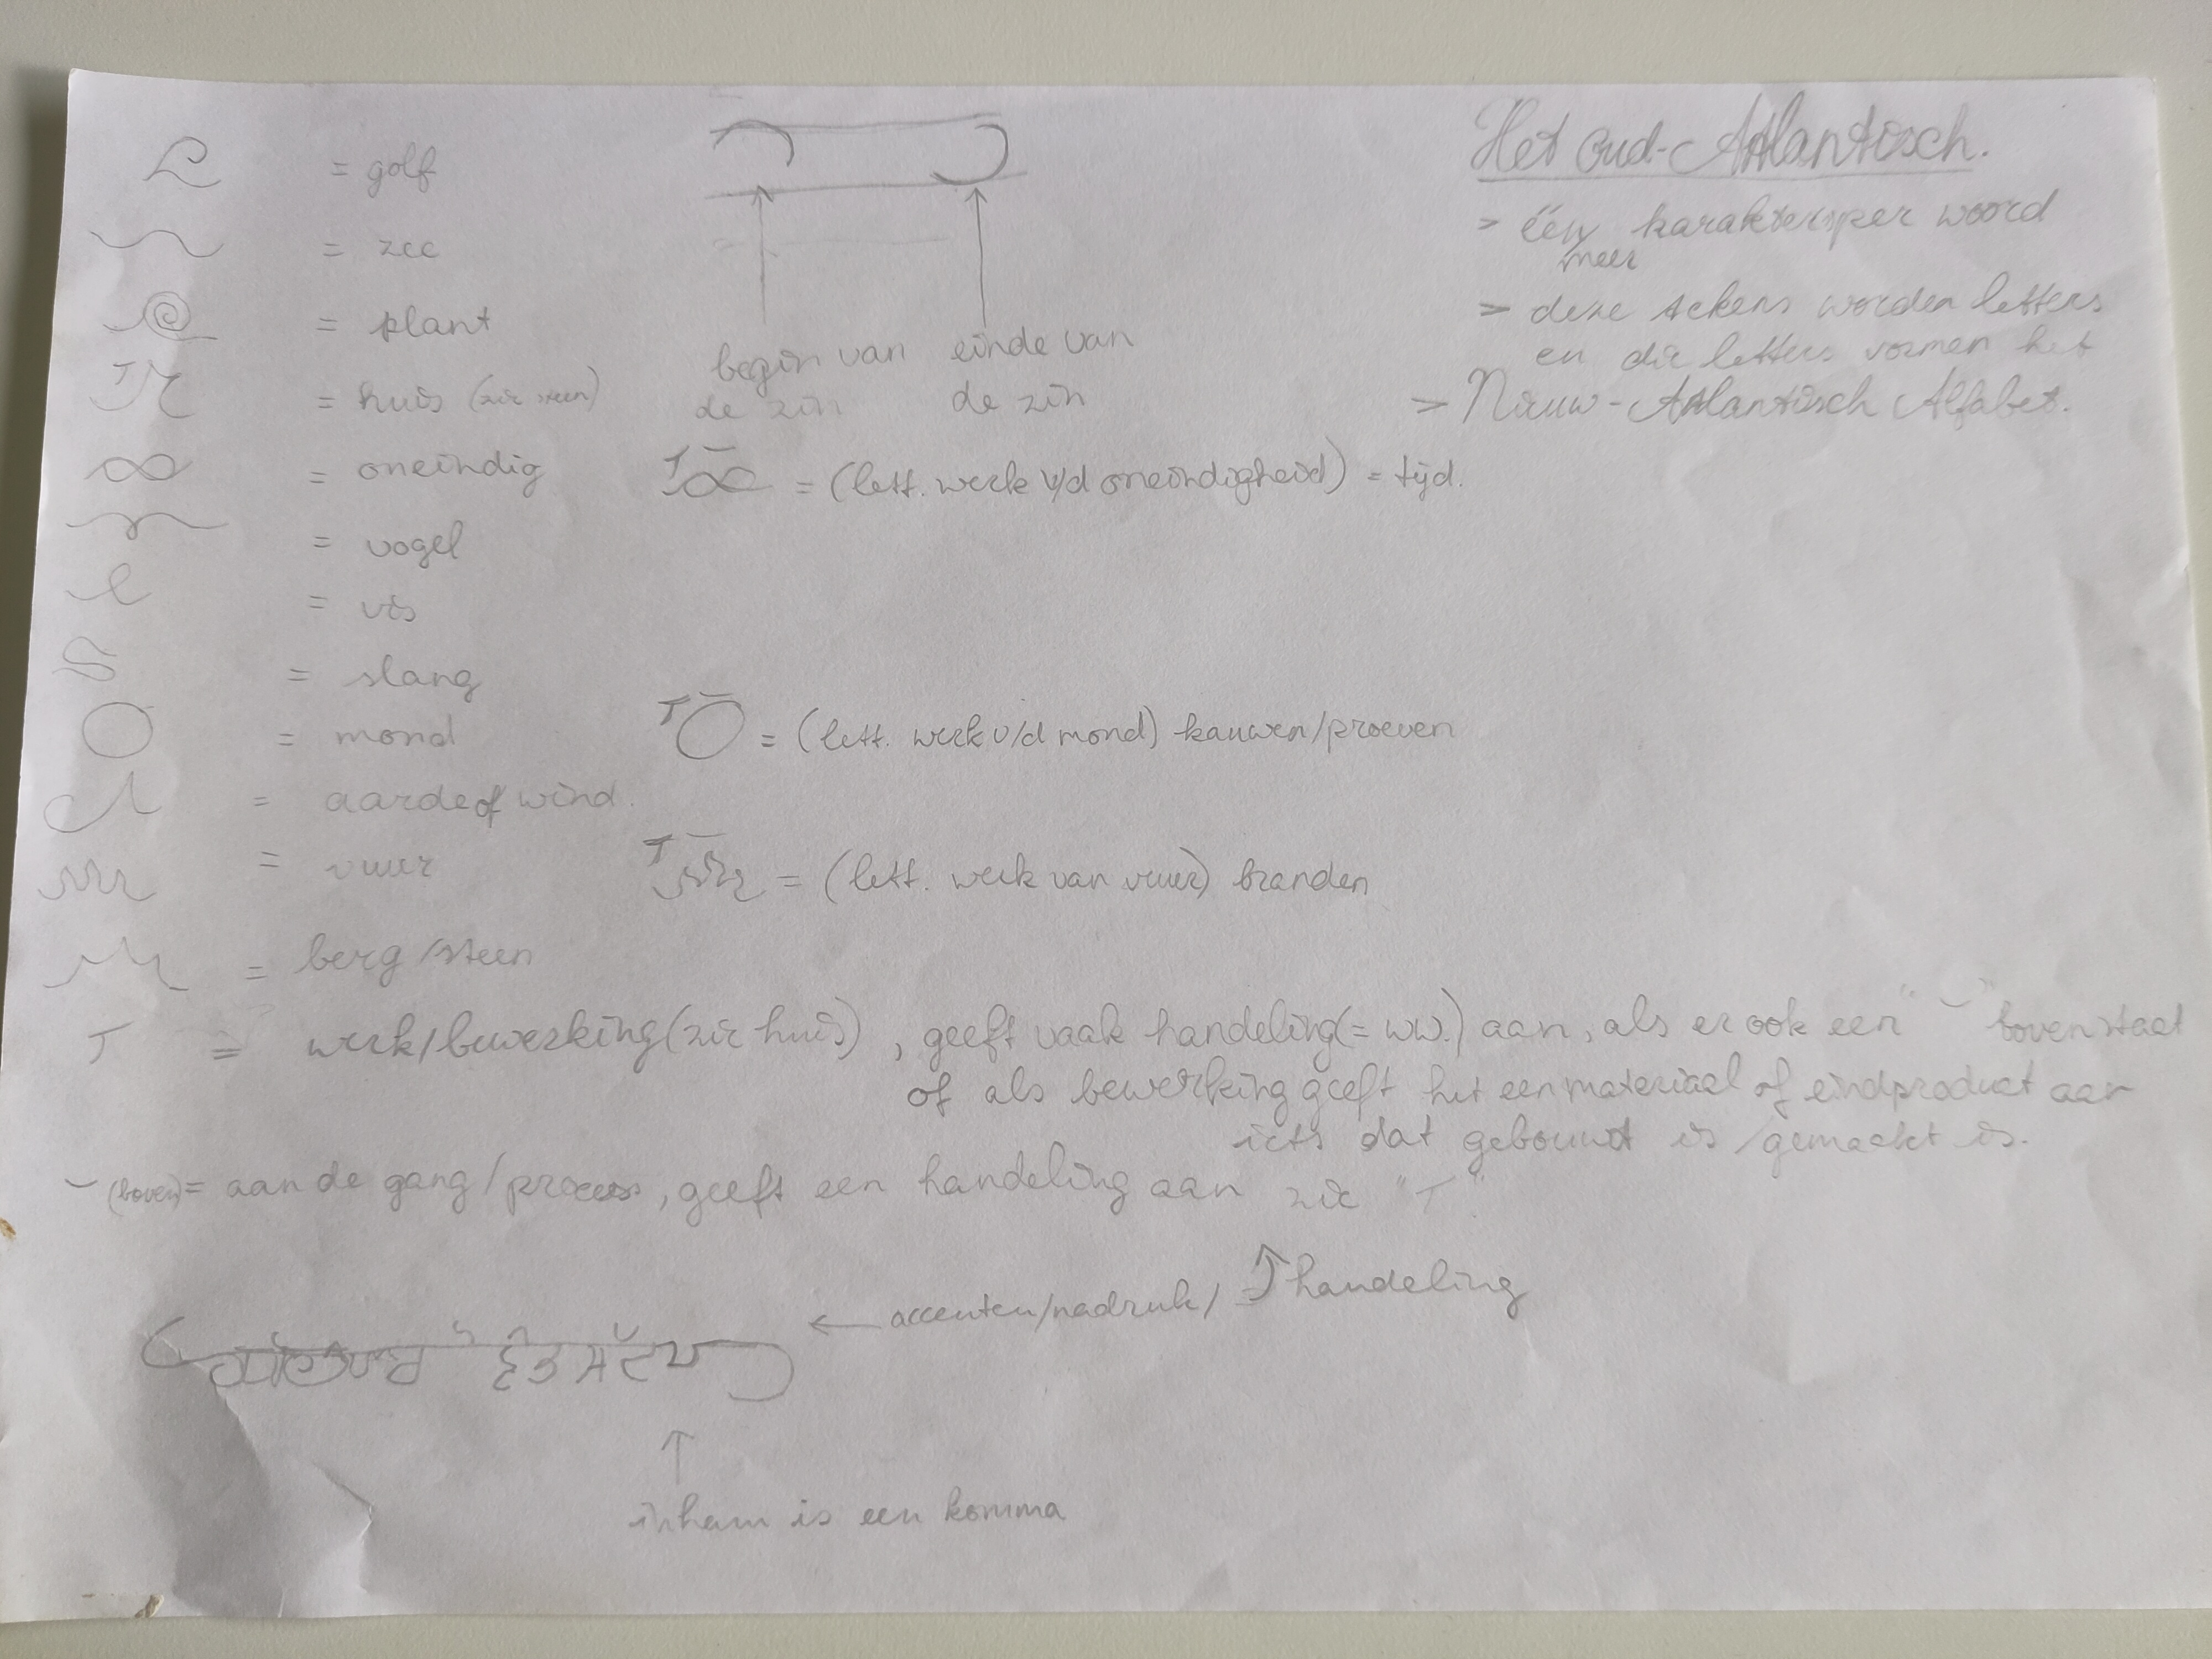 Het oud-Atlantisch.
> één/meer karakters per woord
> deze tekens worden letters
en die letters vormen het
> Nieuw-Atlantisch Alfabet.
= golf
= zee
= plant
= huis (zie steen)
= oneindig
= vogel
= vis
= slang
= mond
= aarde of wind.
= vuur
= berg/steen
begin van de zin
einde van de zin
= (lett. werk v/d oneindigheid) = tijd.
= (lett. werk v/d mond) kauwen/proeven
= (lett. werk van vuur) branden
T = werk/bewerking (zie huis), geeft vaak handeling (= ww.) aan, als er ook een "‿" boven staat
of als bewerking geeft het een materiaal of eindproduct aan
iets dat gebouwd is/gemaakt is.
‿ (boven) = aan de gang/proces, geeft een handeling aan zie "T".
← accenten/nadruk/ handeling
↑
inham is een komma